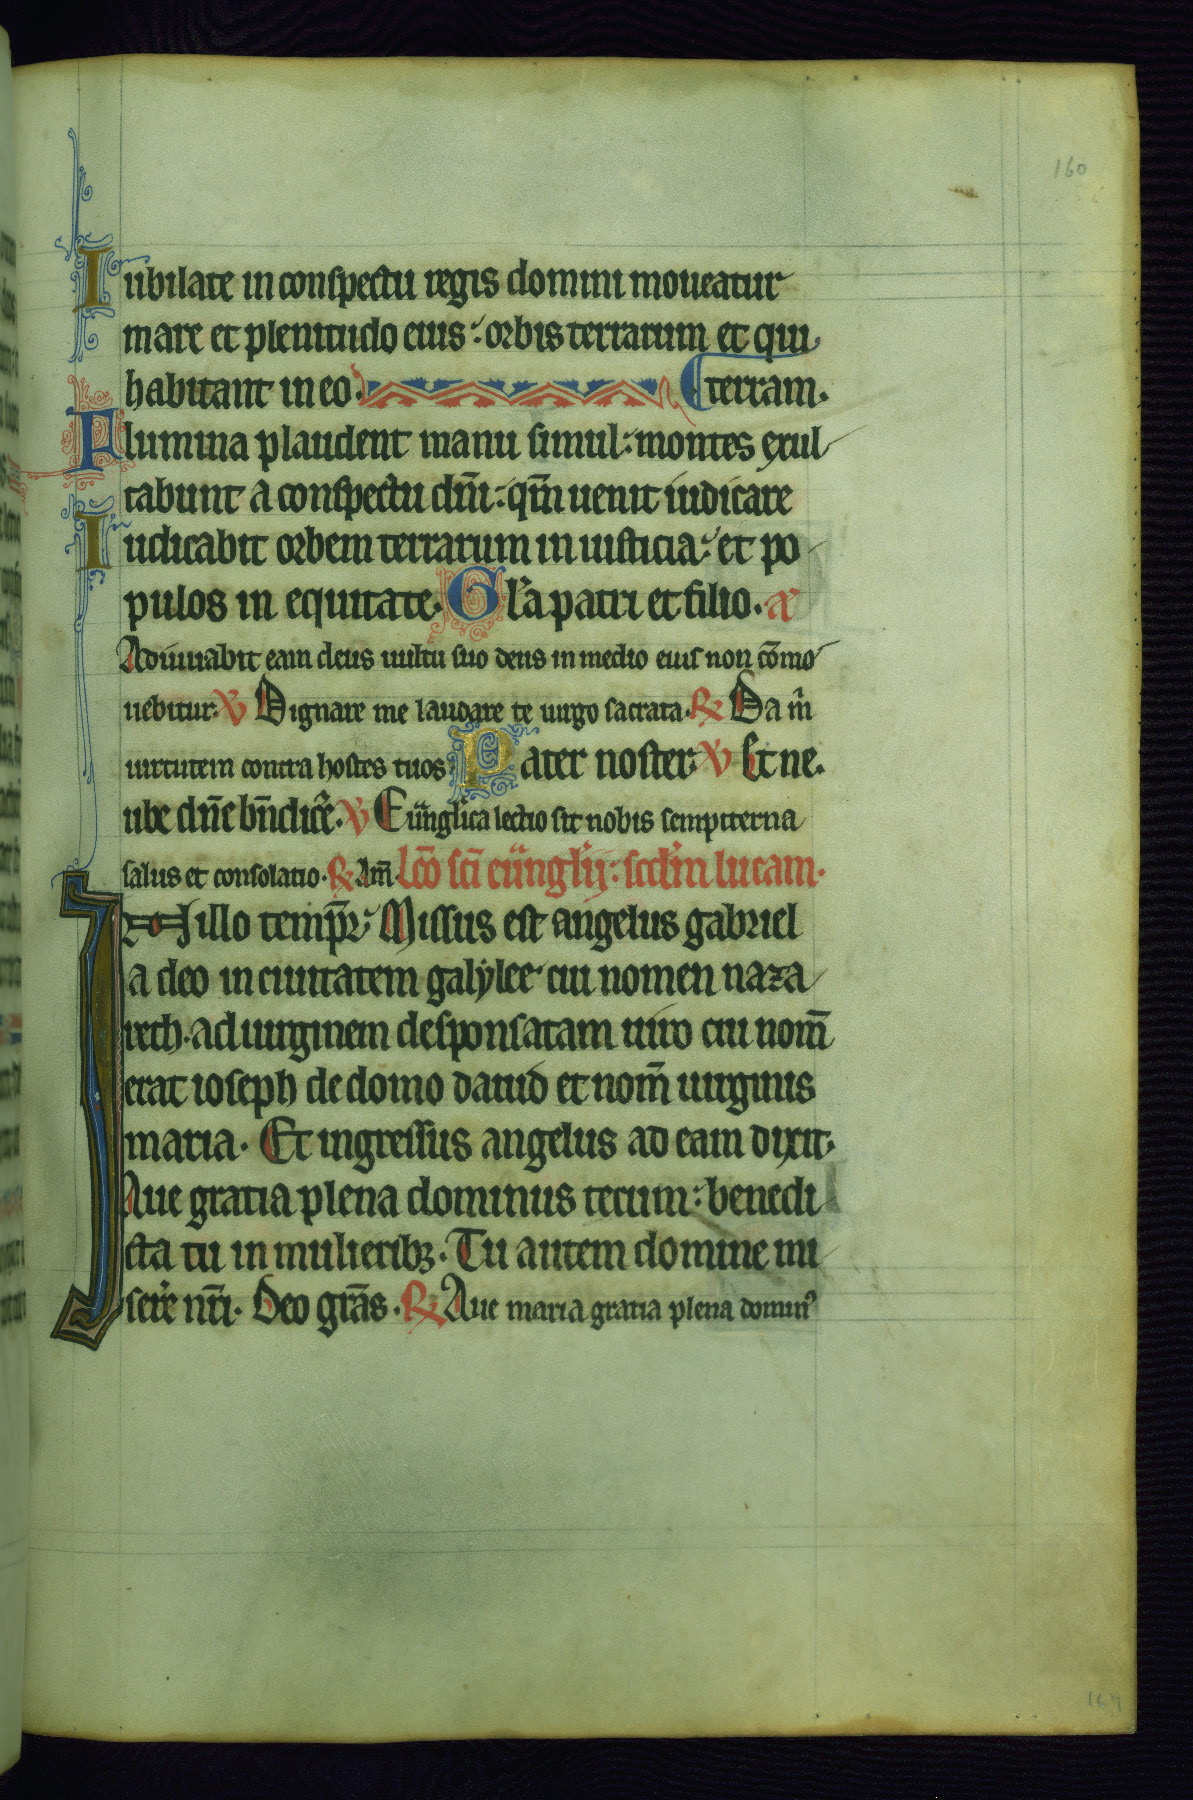 160
Iubilate in conspectu regis domini moueatur
mare et plenitudo eius : orbis terrarum et qui
habitant in eo. terram.
Flumina plaudent manu simul : montes exul
tabunt a conspectu dn̄i : qm̄ uenit iudicare
Iudicabit orbem terrarum in iusticia : et po
pulos in equitate. Gl'a patri et filio. a͞
Adiuuabit eam deus uultu suo deus in medio eius non co̅mo
uebitur. V Dignare me laudare te uirgo sacrata. R Da m̄
uirtutem contra hostes tuos Pater noster V Et ne.
ube dn̄e bn̄dic̄e. V Eūngl'ica lectio sit nobis sempiterna
salus et consolatio. R Am̄. Lc̄o sc̄i eūngl'ij : scd'm lucam.
IN illo temp̄r. Missus est angelus gabriel
a deo in ciuitatem galylee cui nomen naza
reth. ad uirginem desponsatam uiro cui nom̄
erat ioseph de domo dauid et nom̄ uirginis
maria. Et ingressus angelus ad eam dixit.
Aue gratia plena dominus tecum : benedi
cta tu in mulieribꝫ. Tu autem domine mi
sere̅ nr̄i. Deo gr̄as. R Aue maria gratia plena dominꝰ